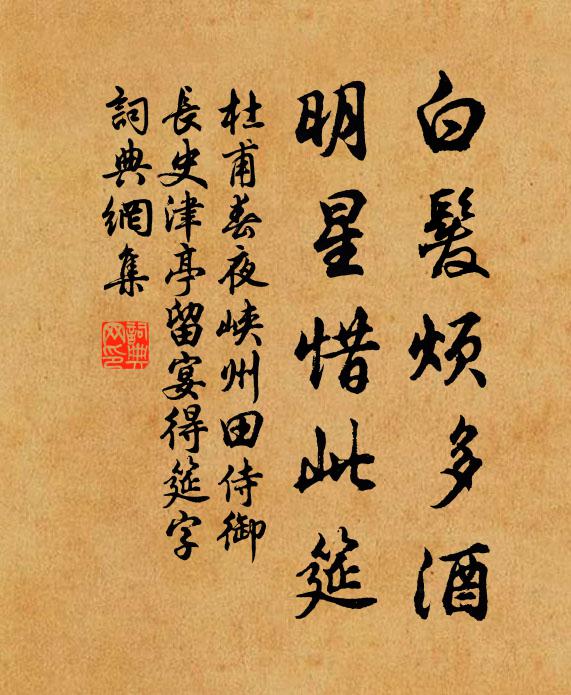 白髮煩多酒
明星惜此筵
杜甫春夜峽州田侍御
長史津亭留宴得筵字
詞典網集
詞典网印